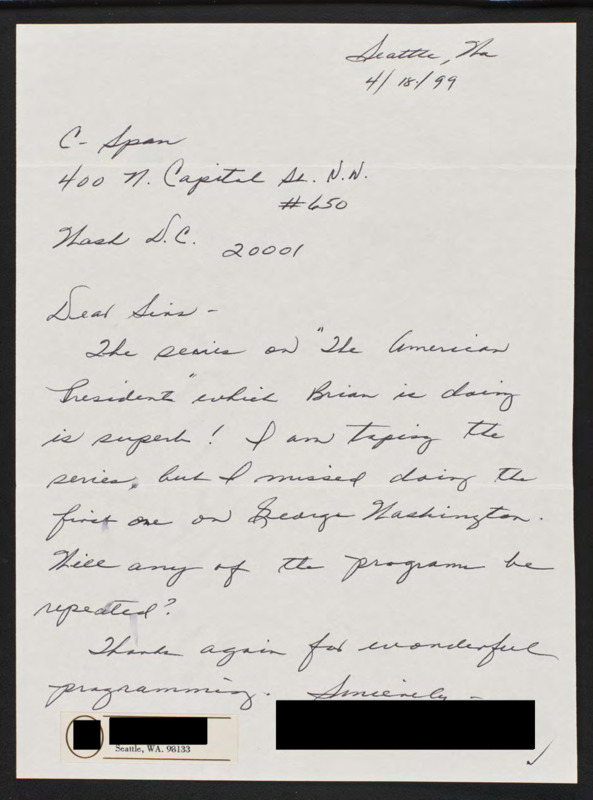 Seattle, Wa
4/18/99
C-Span
400 N. Capital St. N.W.
#650
Wash D.C. 20001
Dear Sirs -
The series on "The American
President" which Brian is doing
is superb! I am taping the
series, but I missed doing the
first one on George Washington.
Will any of the programs be
repeated?
Thanks again for wonderful
programming. Sincerely -
Seattle, WA. 98133